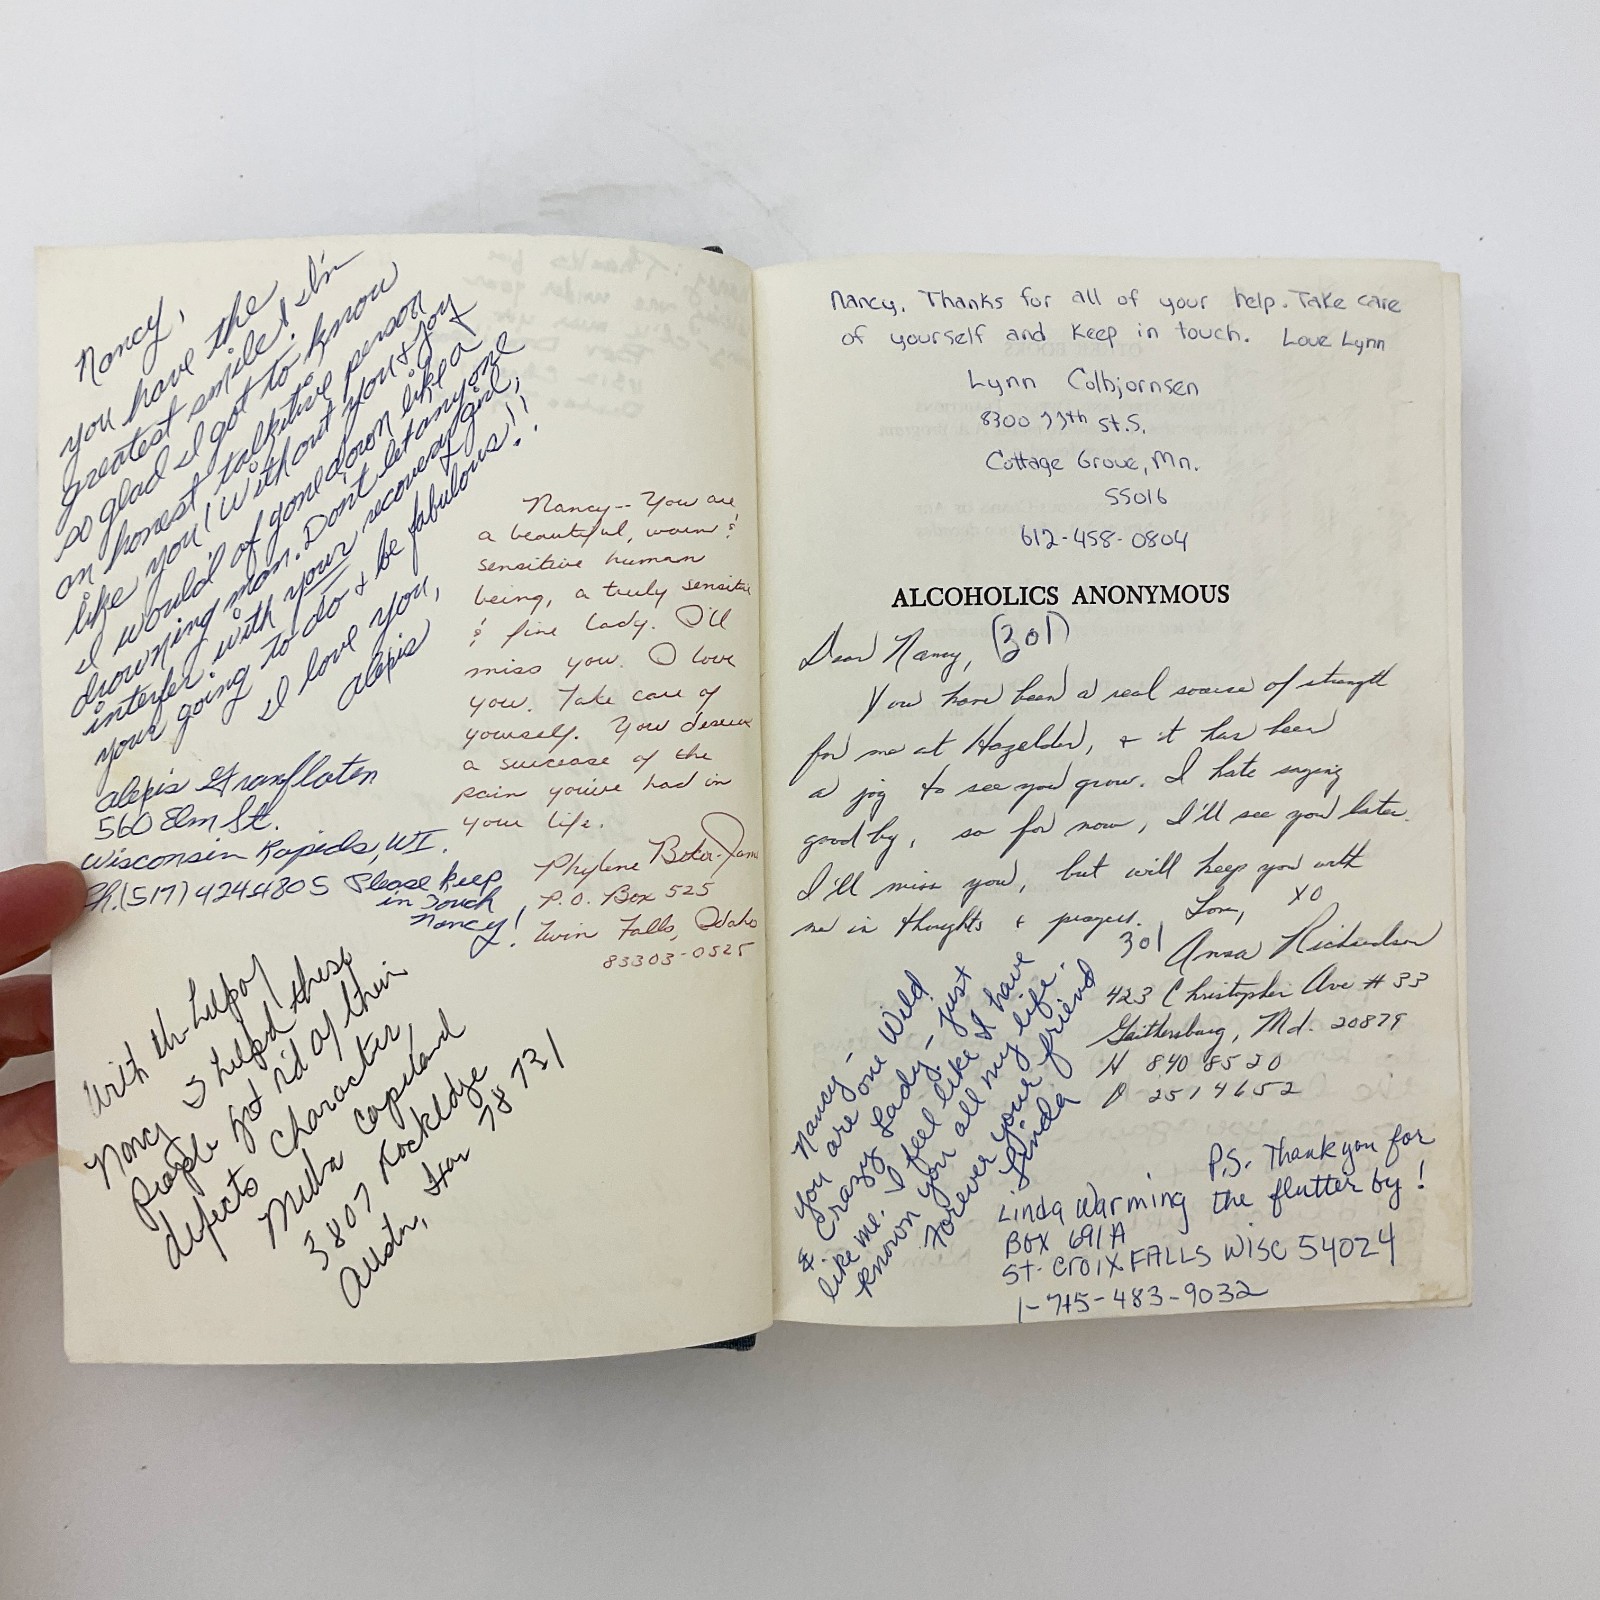 Nancy,
you have the
greatest smile! I'm
so glad I got to know
an honest talkitive person
like you! Without you & joy
I would'd of gone down like a
drowning man. Don't let anyone
interfer with your recovery girl,
your going to do it & be fabulous!!
I love you,
Alexis
Alexis
560 Elm St.
Wisconsin Rapids, WI.
Ph. (517) 4244805 Please keep
in Touch
Nancy!
Nancy-- You are
a beautiful, warm &
sensitive human
being, a truly sensitive
& fine lady. I'll
miss you. I love
you. Take care of
yourself. You deserve
a surcease of the
pain you've had in
your life.
Phylene
P.O. Box 525
Twin Falls, Idaho
83303-0525
With th help of
Nancy I helpd these
people get rid of their
defects Character,
Melba Copeland
3807 Rockledge
Austin, 78731
Nancy, Thanks for all of your help. Take care
of yourself and keep in touch. Love Lynn
Lynn Colbjornsen
8300 77th St. S.
Cottage Grove, Mn.
55016
612-458-0804
ALCOHOLICS ANONYMOUS
Dear Nancy, (301)
You have been a real sourse of strength
for me at Hazelden, & it has been
a joy to see you grow. I hate saying
good by, so for now, I'll see you later.
I'll miss you, but will keep you with
me in thoughts & prayers. Love, XO
301 Richardson
423 Christopher Ave # 33
Gaithersburg, Md. 20879
H 840 8520
O 2514652
Nancy -
You are one Wild
& Crazy Lady - just
like me. I feel like I have
known you all my life.
Forever your friend
Linda
P.S. Thank you for
the flutter by!
Linda Warming
Box 691A
St. Croix FALLS WISC 54024
1-715-483-9032